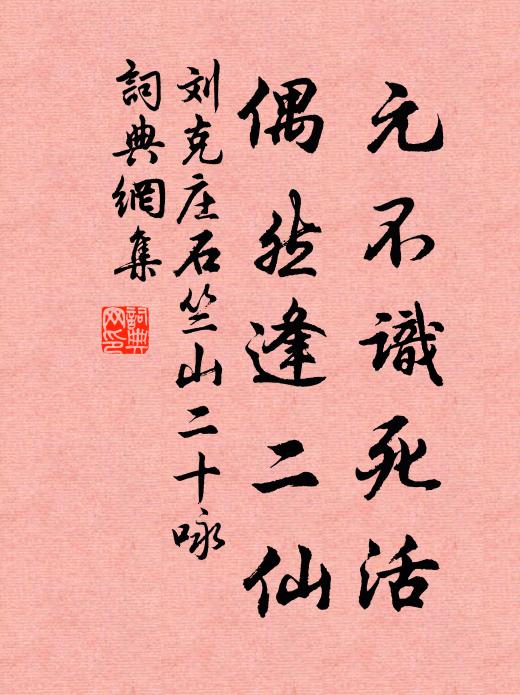 元不識死活
偶然逢二仙
刘克庄石竺山二十咏
詞典網集
詞典网印